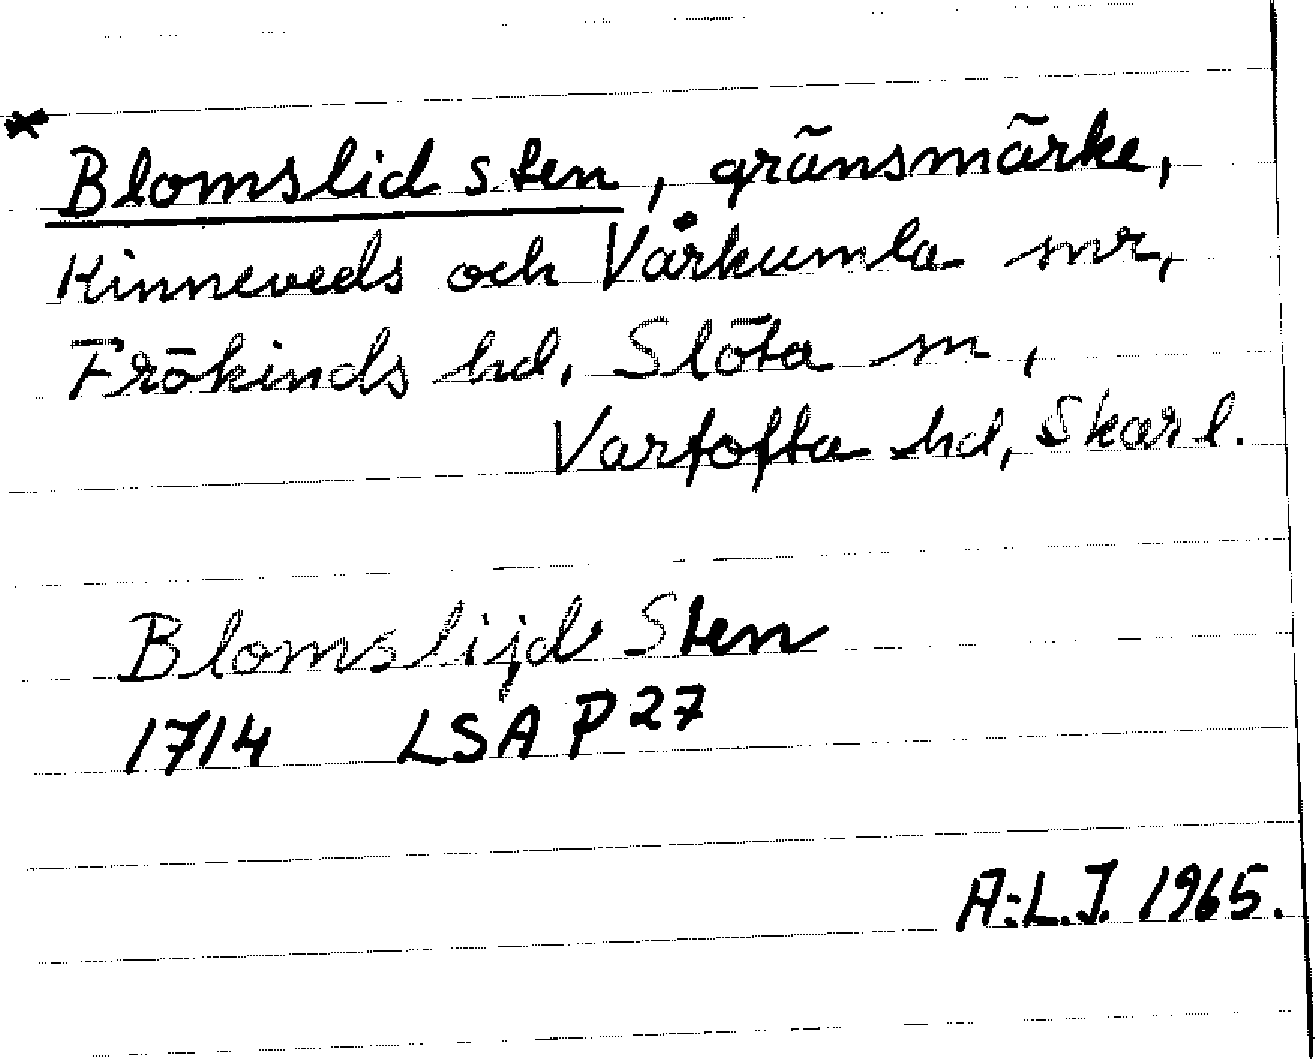 * Blomslid sten, gränsmärke,
Kinneveds och Vårkumla snr,
Frökinds hd, Slöta sn,
Vartofta hd, Skar l.
Blomslijd Sten
1714 LSA P 27
A:L.J. 1965.